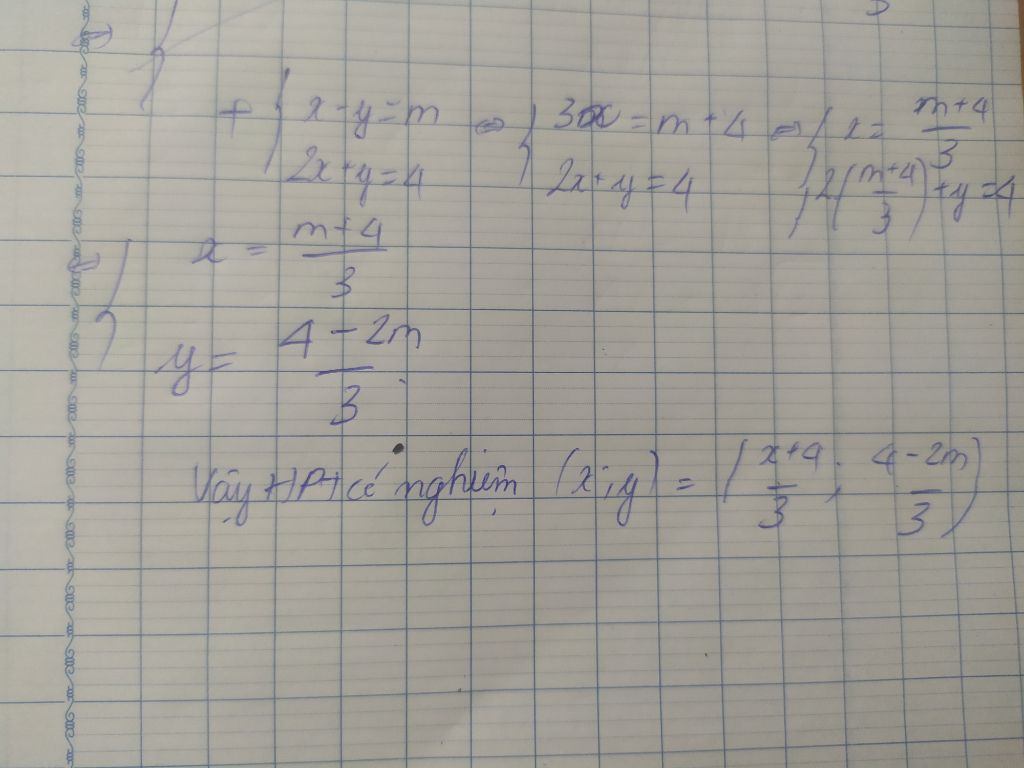 + { x - y = m ⇔ { 3x = m + 4 ⇔ { x = (m+4)/3
2x + y = 4 2x + y = 4 2((m+4)/3) + y = 4
⇔ { x = (m+4)/3
y = (4 - 2m)/3
Vậy HPT có nghiệm (x; y) = ((x+4)/3; (4-2m)/3)